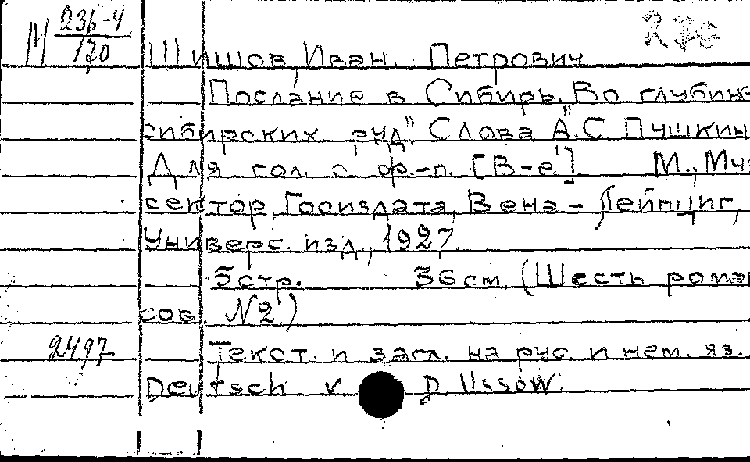 М 236-4/170
Шишов, Иван Петрович
Послание в Сибирь. „Во глубине
сибирских руд". Слова А.С. Пушкин
Для гол. с ф-п. [В-е] М., Муз
сектор Госиздата, Вена - Лейпциг,
Универс. изд., 1927.
5 стр. 36 см. (Шесть роман
сов. №2)
2497 Текст. и загл. на рус. и нем. яз.
Deutsch v. D. Ussow.